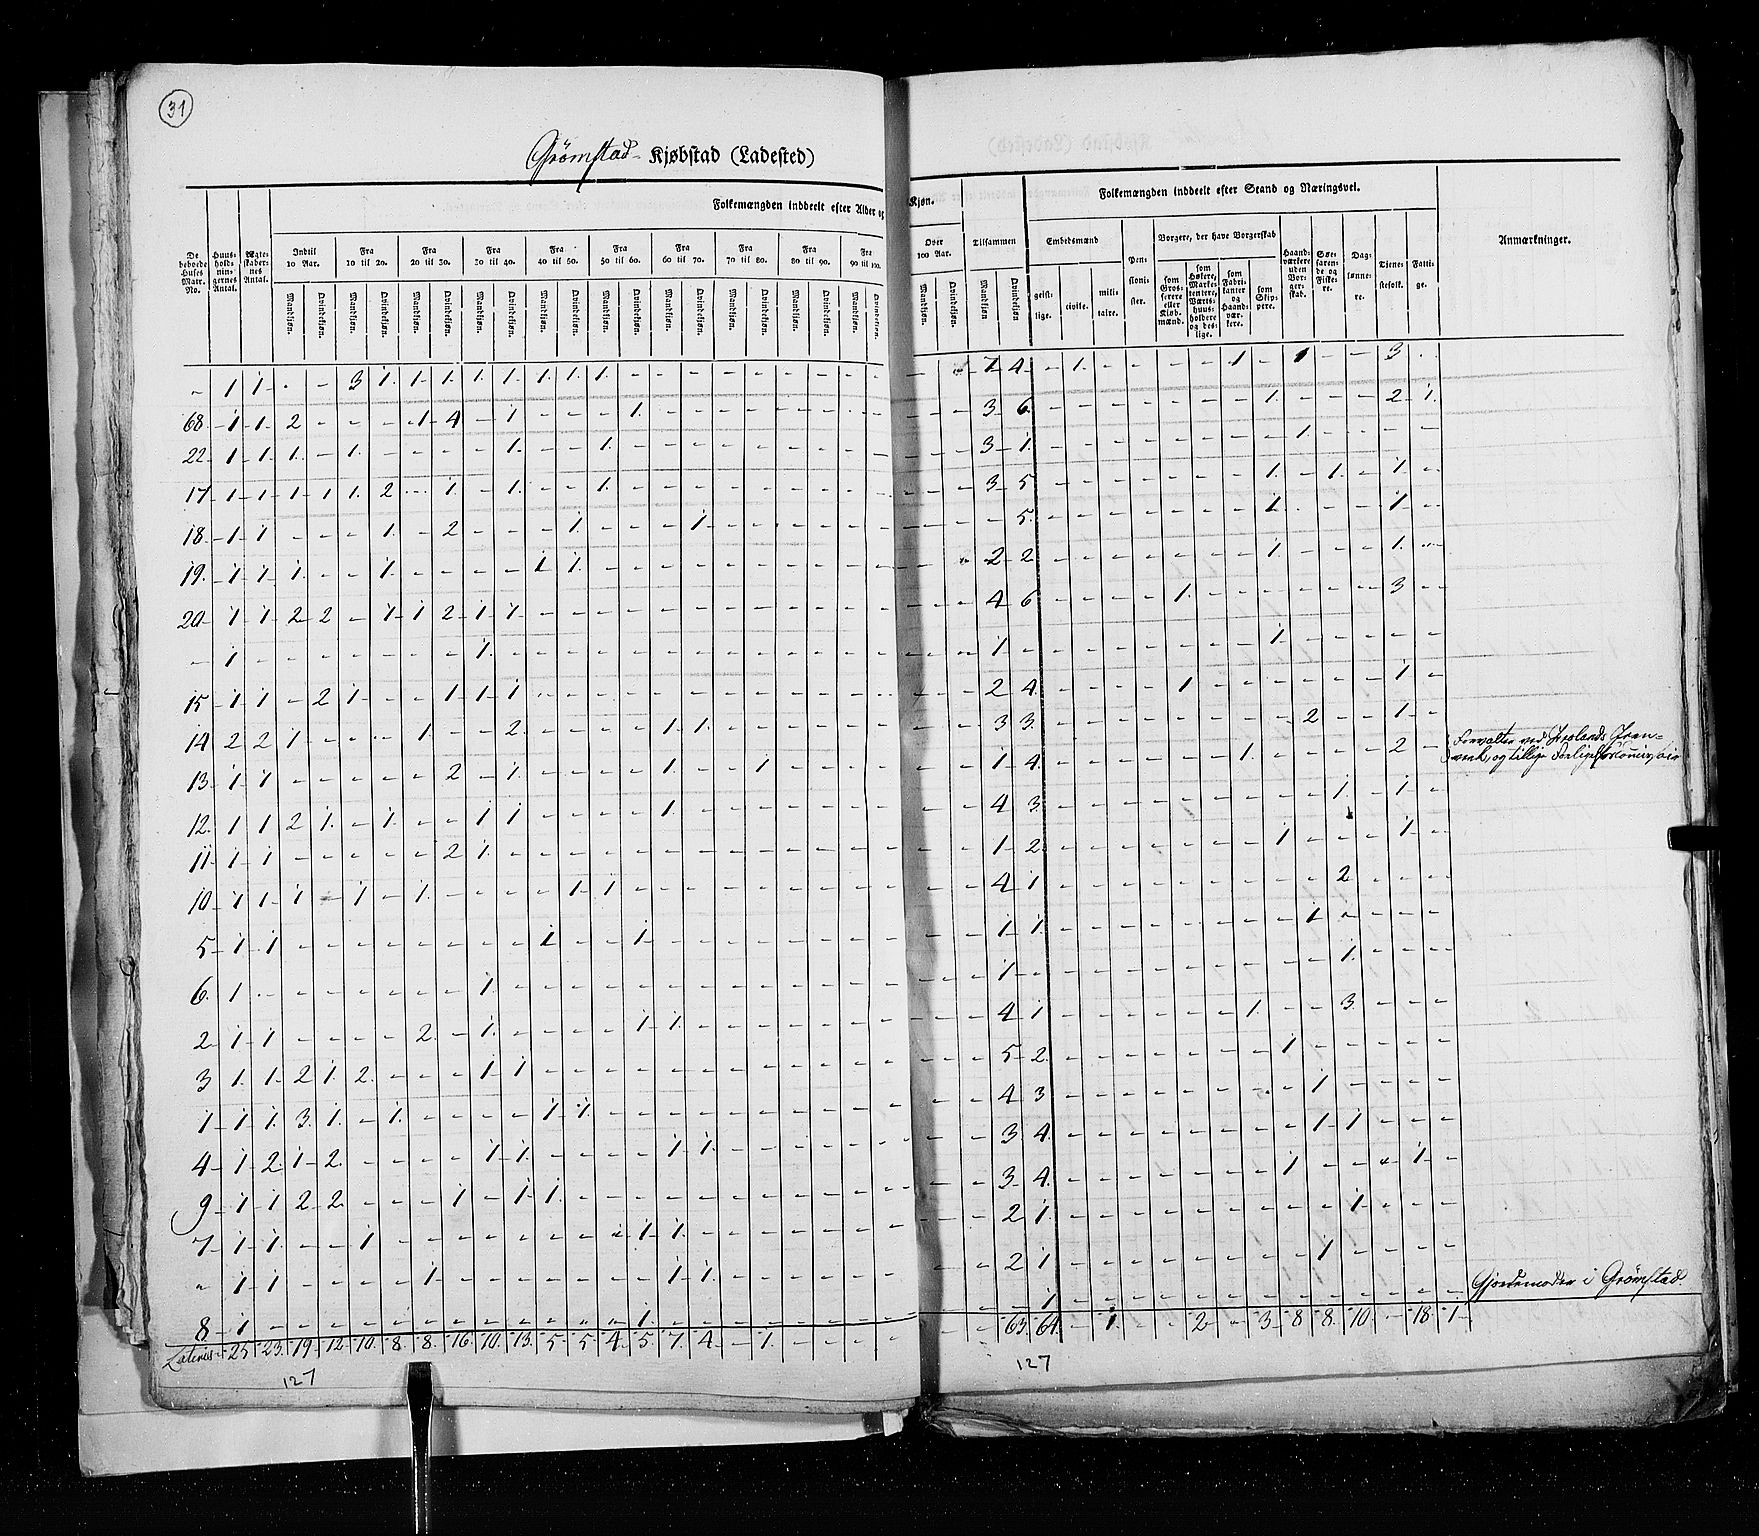 31
Grömstad Kjøbstad (Ladested)
Folkemængden inddeelt efter Alder og Kjøn.
Folkemængden inddeelt efter Stand og Næringsvei.
De beboede Huses Matr. No.
Huusholdningernes Antal.
Ægteskabernes Antal.
Indtil 10 Aar.
Fra 10 til 20.
Fra 20 til 30.
Fra 30 til 40.
Fra 40 til 50.
Fra 50 til 60.
Fra 60 til 70.
Fra 70 til 80.
Fra 80 til 90.
Fra 90 til 100.
Over 100 Aar.
Tilsammen
Mandkjøn. Qvindekjøn.
Embedsmænd
geistlige. civile. militaire.
Pensionister.
Borgere, der have Borgerskab
som Grosserere eller Kjøbmænd.
som Høkere, Marketentere, Værtshuusholdere og deslige.
som Fabrikanter og Haandværkere.
som Skippere.
Haandværkere uden Borgerskab.
Søefarende og Fiskere.
Daglønnere.
Tjenestefolk.
Fattige.
Anmærkninger.
" 1 1 - - 3 1 1 1 1 1 1 1 1 - - - - - - - - - - - - 7 4 - 1 - - - - 1 - 1 - - 3 -
68 1 1 2 - - - 1 4 - 1 - - - 1 - - - - - - - - - - 3 6 - - - - - - - 1 - - - 2 1
22 1 1 1 - 1 - - - - 1 - - 1 - - - - - - - - - - - 3 1 - - - - - - - - 1 - - - -
17 1 1 1 1 1 2 - 1 - 1 - - 1 - - - - - - - - - - - 3 5 - - - - - - - 1 - 1 - 1 -
18 1 1 - - - 1 - 2 - - - 1 - - - 1 - - - - - - - - - 5 - - - - - - - 1 - - - 1 -
19 1 1 1 - - 1 - - - - 1 1 - - - - - - - - - - - - 2 2 - - - - - - - 1 - - - 1 -
20 1 1 2 2 - 1 1 2 1 1 - - - - - - - - - - - - - - 4 6 - - - - 1 - - - - - - 3 -
" 1 - - - - - - - 1 - - - - - - - - - - - - - - - 1 - - - - - - - - 1 - - - - -
15 1 1 - 2 1 - - 1 1 1 - - - - - - - - - - - - - - 2 4 - - - - 1 - - - - - - 1 -
14 2 2 1 - - - 1 - - 2 - - - - 1 1 - - - - - - - - 3 3 - - - - - - - - 2 - - 1 -
13 1 1 - - - - - 2 - 1 - - - - 1 - - 1 - - - - - - 1 4 - - - - - - 1 - - - - 2 -
12 1 1 2 1 - 1 - - 1 1 - - - - 1 - - - - - - - - - 4 3 - - - - - - - - - 1 - 1 -
11 1 1 - - - - - 2 1 - - - - - - - - - - - - - - - 1 2 - - - - - - - 1 - - - 1 -
10 1 1 1 - 1 - 1 - - - - 1 1 - - - - - - - - - - - 4 1 - - - - - - - - - 2 - - -
5 1 1 - - - - - - - - 1 - - 1 - - - - - - - - - - 1 1 - - - - - - - - 1 - - - -
6 1 - - - - - - - 1 - - - - - - - - - - - - - - - 1 - - - - - - - - - - 1 - - -
2 1 1 - - - - 2 - 1 - - - - 1 1 - - - - - - - - - 4 1 - - - - - - 1 - - 3 - - -
3 1 1 2 1 2 - - - 1 1 - - - - - - - - - - - - - - 5 2 - - - - - - - 1 - - - - -
1 1 1 3 1 - 1 - - - - 1 1 - - - - - - - - - - - - 4 3 - - - - - - - - 1 - - - -
4 1 2 1 2 - - - - 1 1 - - - - 1 1 - - - - - - - - 3 4 - - - - - - - - 1 1 - - -
9 1 1 2 2 - - - 1 - 1 1 - - - - - - - - - - - - - 3 4 - - - - - - - 1 - - - 1 -
7 1 1 - - 1 - - - - - - - - 1 1 - - - - - - - - - 2 1 - - - - - - - - - 1 - - -
" 1 1 - - - - 1 - - - - - - - 1 1 - - - - - - - - 2 1 - - - - - - - - 1 - - - -
8 1 - - - - - - - - - - - - 1 - - - - - - - - - - - 1 - - - - - - - - - - - - -
Lateris 25 23 19 12 10 8 8 16 10 13 5 5 4 5 7 4 - 1 - - - - - - 63 64 - 1 - - 2 - 3 8 8 10 - 18 1
Forvalter ved
og tillige
Gjordemoder i Grömstad.
127
127